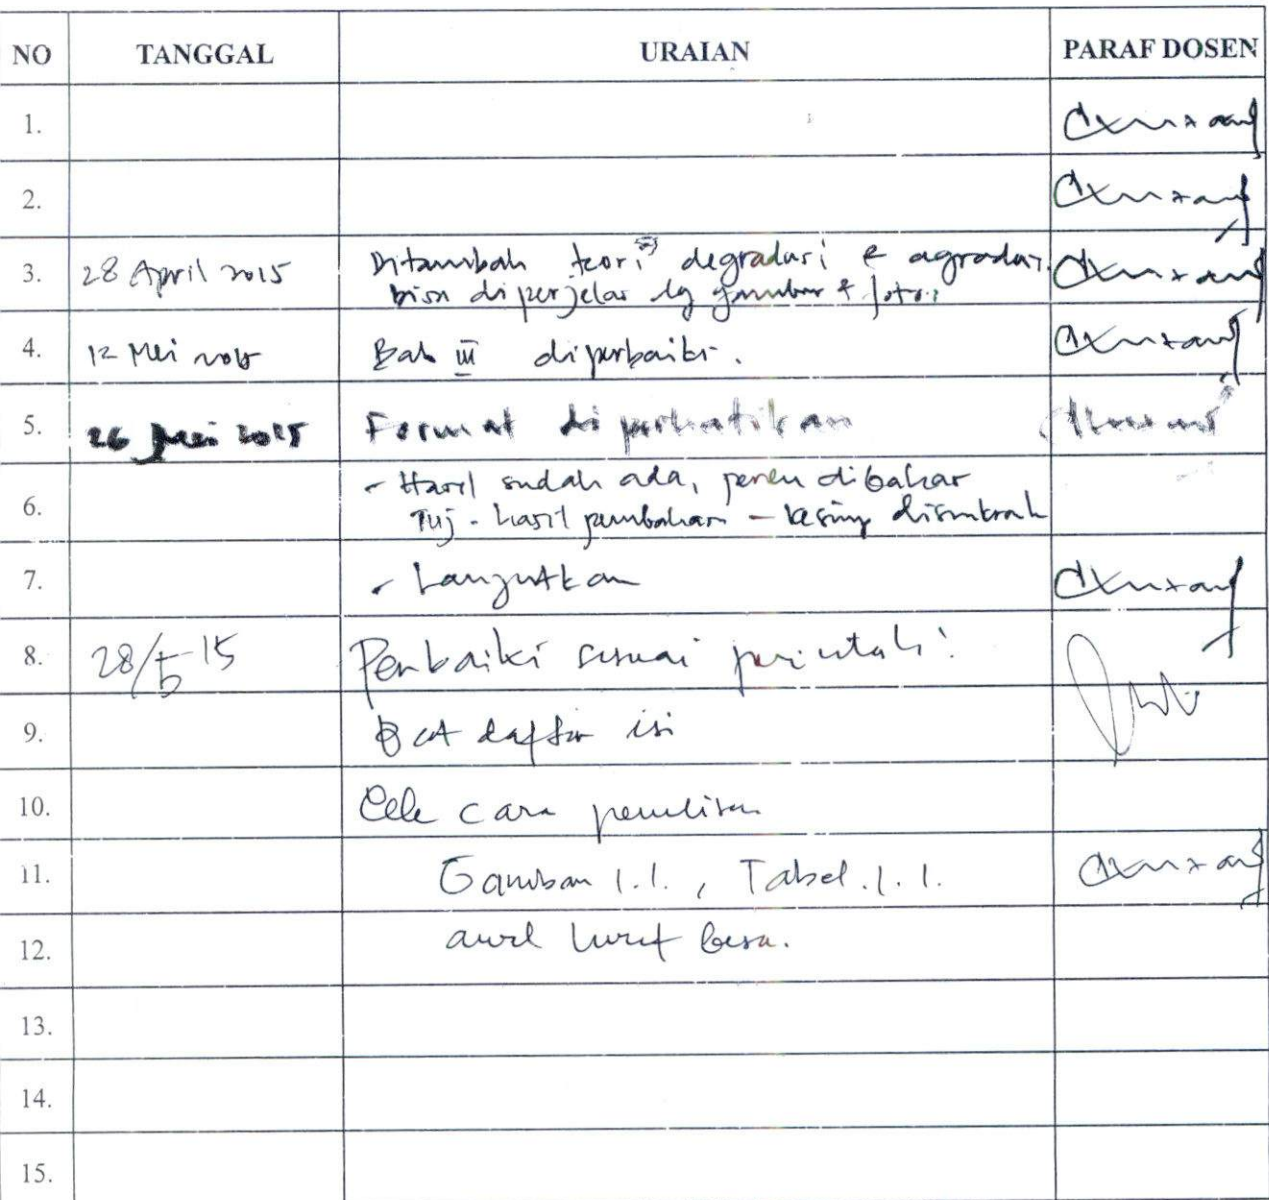 NO TANGGAL URAIAN PARAF DOSEN
1.
2.
3. 28 April 2015 Ditambah teori degradasi & agradasi
bisa diperjelas dg gambar & foto
4. 12 Mei 2015 Bab III diperbaiki.
5. 26 Mei 2015 Format diperhatikan
6. - Hasil sudah ada, dibahas
Tuj - hasil pembahasan -
7. - Lanjutkan
8. 28/5 15 Perbaiki sesuai perintah!
9. daftar isi
10. Cek cara penulisan
11. Gambar 1.1., Tabel.1.1.
12. awal huruf besar.
13.
14.
15.